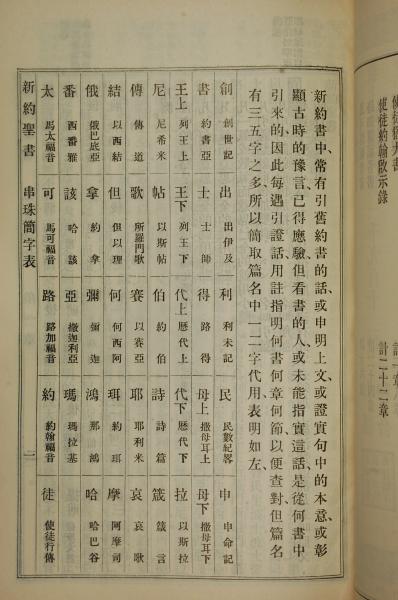 使徒約翰啟示錄 計二十二章
新約書中、常有引舊約書的話、或申明上文、或證實句中的本意、或彰
顯古時的豫言、已得應驗、但看書的人、或未能指實這話是從何書中
引來的、因此每遇引證話、用註指明何書何章何節、以便查對、但篇名
有三五字之多、所以簡取篇名中一二字代用、表明如左、
創 創世記 出 出伊及 利 利未記 民 民數紀畧 申 申命記
書 約書亞 士 士師 得 路得 母上 撒母耳上 母下 撒母耳下
王上 列王上 王下 列王下 代上 歷代上 代下 歷代下 拉 以斯拉
尼 尼希米 帖 以斯帖 伯 約伯 詩 詩篇 箴 箴言
傳 傳道 歌 所羅門歌 賽 以賽亞 耶 耶利米 哀 哀歌
結 以西結 但 但以理 何 何西阿 珥 約珥 摩 阿摩司
俄 俄巴底亞 拿 約拿 彌 彌迦 鴻 那鴻 哈 哈巴谷
番 西番雅 該 哈該 亞 撒迦利亞 瑪 瑪拉基
太 馬太福音 可 馬可福音 路 路加福音 約 約翰福音 徒 使徒行傳
新約聖書 串珠簡字表 二